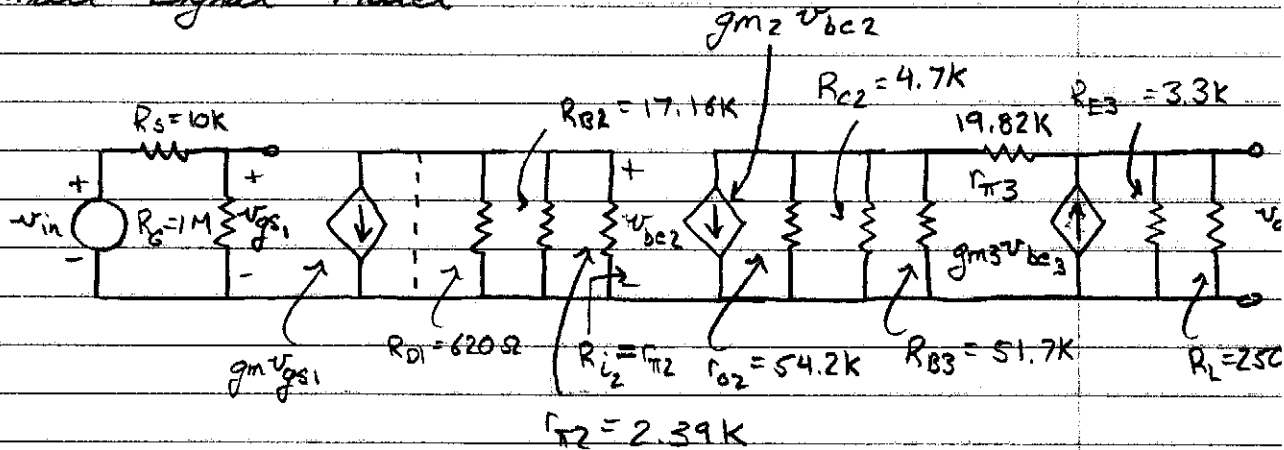 Small Signal Model
gm2 vbe2
RS=10K
RB2 = 17.16K
RC2 = 4.7K
19.82K
RE3 = 3.3K
+
+
+
vin
RG=1M
vgs1
vbe2
rπ3
gm3vbe3
-
-
gmvgs1
RD1=620Ω
Ri2=rπ2
ro2=54.2K
RB3=51.7K
RL=250
rπ2=2.39K